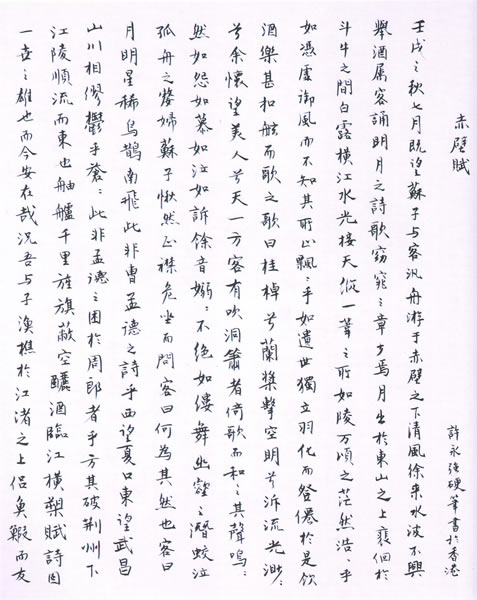 赤壁賦
許永強硬筆書於香港
壬戌之秋七月既望蘇子与客汎舟游于赤壁之下清風徐來水波不興
舉酒属客誦明月之詩歌窈窕之章少焉月出於東山之上裴佪於
斗牛之間白露横江水光接天縱一葦之所如陵万頃之茫然浩〻乎
如憑虛御風而不知其所止飄〻乎如遺世獨立羽化而登僊於是飲
酒樂甚扣舷而歌之歌曰桂棹兮蘭槳擊空明兮泝流光渺〻
兮余懷望美人兮天一方客有吹洞簫者倚歌而和〻其聲嗚〻
然如怨如慕如泣如訴餘音嫋〻不絕如縷舞幽壑之潛蛟泣
孤舟之嫠婦蘇子愀然正襟危坐而問客曰何為其然也客曰
月明星稀烏鵲南飛此非曹孟德之詩乎西望夏口東望武昌
山川相繆鬱乎蒼〻此非孟德之困於周郎者乎方其破荆州下
江陵順流而東也舳艫千里旌旗蔽空釃酒臨江橫槊賦詩固
一世之雄也而今安在哉況吾与子漁樵於江渚之上侶魚鰕而友